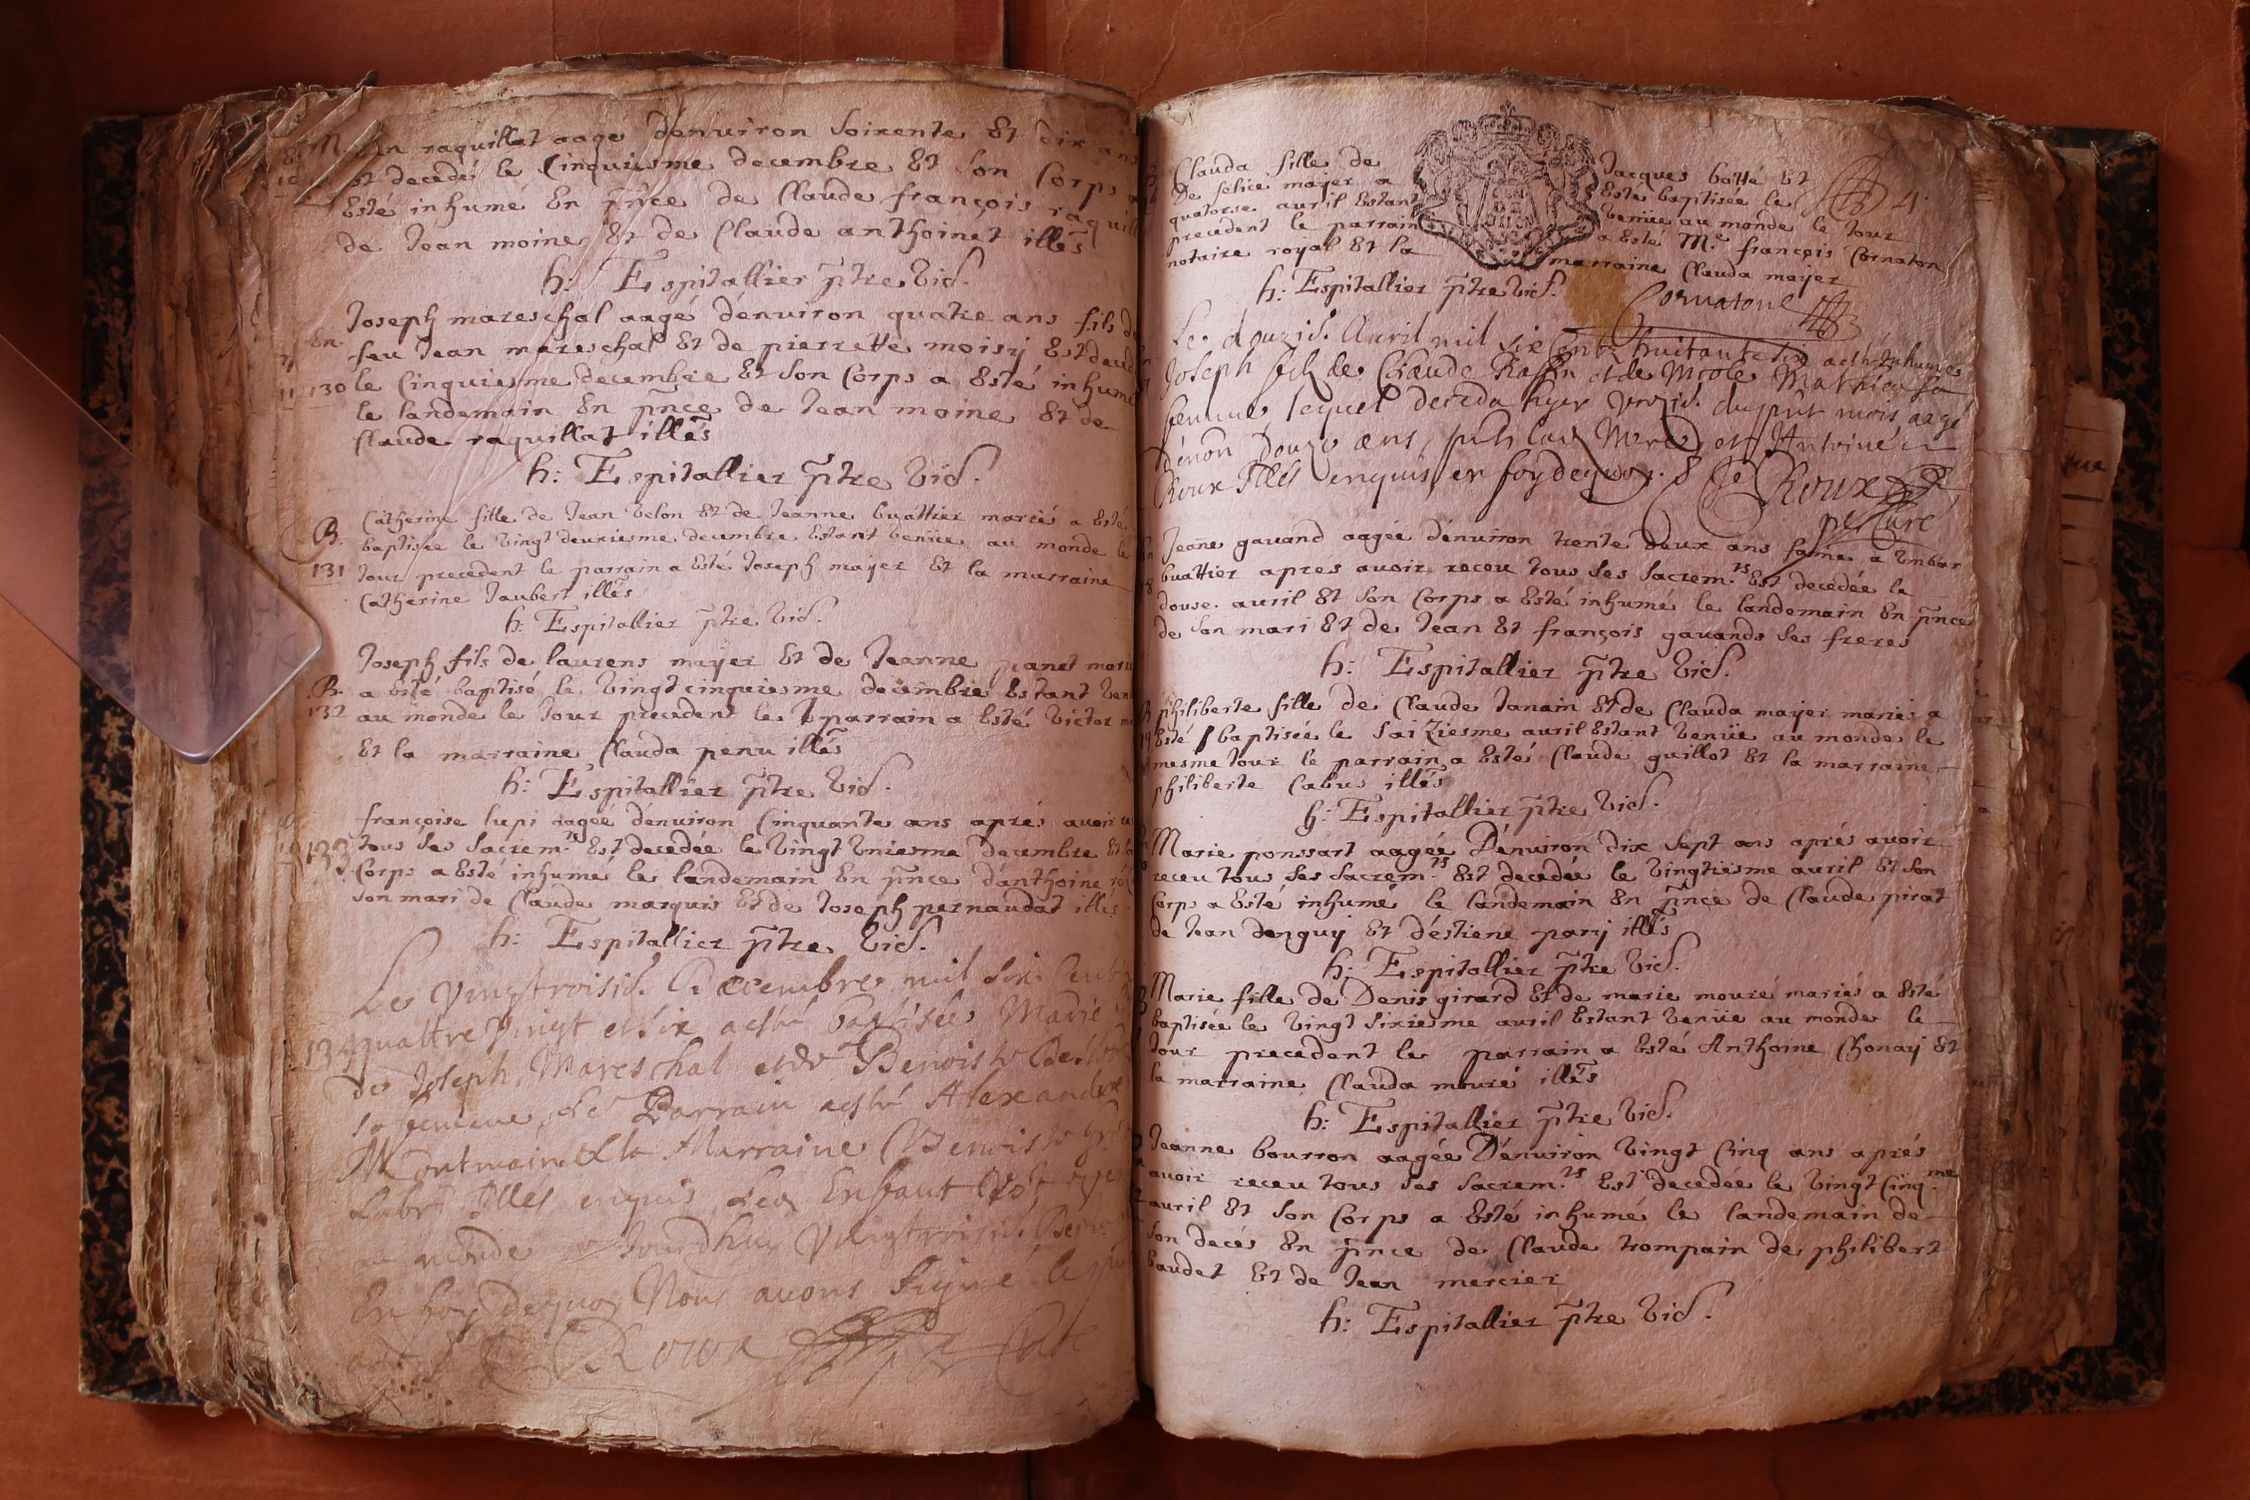 raquillat aagé d'enuiron Soixente Et dix ans
Est decedé le Cinquiesme decembre Et Son Corps a
Esté inhumé En pñce de Claude françois raquill
de Jean moine Et de Claude anthoinet illés
h: Espitallier p̃tre vic.
En
Joseph mareschal aagé d'enuiron quatre ans fils de
feu Jean mareschal Et de pierrette moisy Est decedé
130 le Cinquiesme decembre Et Son Corps a Esté inhumé
le landemain En pñce de Jean moine Et de
Claude raquillat illés
h: Espitallier p̃tre vic.
B. 131
Catherine fille de Jean velon Et de Jeanne buattier mariés a Esté
baptisée le vingt deuxiesme decembre Estant venüe au monde le
Jour precedent le parrain a Esté Joseph mayer Et la marraine
Catherine Jaubert illés
h: Espitallier p̃tre vic.
B. 132
Joseph fils de laurens mayer Et de Jeanne pianet mariés
a Esté baptisé le vingt cinquiesme decembre Estant venu
au monde le Jour precedent le parrain a Esté victor
Et la marraine Clauda penu illés
h: Espitallier p̃tre vic.
133
françoise lupi aagée d'enuiron Cinquante ans aprés auoir
tous Ses Sacrem.ts Est decedée le vingt vniesme decembre Et
Corps a Esté inhumé le landemain En pñce d'anthoine
Son mari de Claude marquis Et de Joseph pernaudat illés
h: Espitallier p̃tre vic.
134
Le Vingtroisie. Decembre mil six Cent
quattre Vingt et six a esté baptisée Marie
de Joseph Mareschal et de Benoiste
sa femme, Le Parrain a esté Alexandre
Montmain & la Marraine Benoiste
Illés enquis Led Enfant
au monde Jourdhuy Vingtroisie.
En foy dequoy Nous auons signé le
Roux Curé
Clauda fille de Jacques botté Et
De felice mayer a Esté baptisée le
quatorse auril Estant venüe au monde le Jour
precedent le parrain a Esté M.r françois Cornaton
notaire royal Et la marraine Clauda mayer
h: Espitallier p̃tre vic. Cornaton
Le douzie. Auril mil six Cent huitante six a esté Inhumé
Joseph fils de Claude Raffin et de Nicole Mathieu sa
femme, lequel deceda hyer Vnzie. du pñt mois aagé
d'enon Douze ans, pñts Claude Mercier et Antoine
Roux Illés enquis, en foy dequoy. Roux
p̃tre Curé
Jeane gauand aagée d'enuiron trente deux ans fame a
buattier apres auoir receu tous Ses Sacrem.ts Est decedée le
douse auril Et Son Corps a Esté inhumé le landemain En pñce
de Son mari Et de Jean Et françois gauands Ses freres
h: Espitallier p̃tre vic.
philiberte fille de Claude Janain Et de Clauda mayer mariés a
Esté baptisée le Saiziesme auril Estant venüe au monde le
mesme Jour le parrain a Esté Claude guillot Et la marraine
philiberte Cabus illés
h: Espitallier p̃tre vic.
Marie ponssart aagée D'enuiron dix Sept ans aprés auoir
receu tous Ses Sacrem.ts Est decedée le vingtiesme auril Et Son
Corps a Esté inhumé le landemain En pñce de Claude pirat
de Jean danguy Et d'estiene pary illés
h: Espitallier p̃tre vic.
Marie fille de Denis girard Et de marie moure mariés a Esté
baptisée le vingt Sixiesme auril Estant venüe au monde le
Jour precedent le parrain a Esté Anthoine Chonay Et
la marraine Clauda mouré illés
h: Espitallier p̃tre vic.
Jeanne bourron aagée D'enuiron vingt Cinq ans aprés
auoir receu tous Ses Sacrem.ts Est decedée le vingt Cinq.me
auril Et Son Corps a Esté inhumé le landemain de
Son decés En pñce de Claude trompain de philibert
baudet Et de Jean mercier
h: Espitallier p̃tre vic.